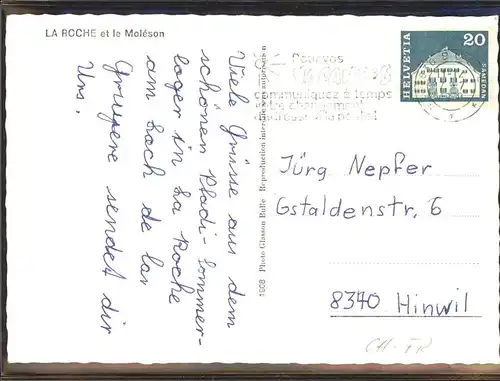 LA ROCHE et le Moléson
Viele Grüsse aus dem
schönen Pfadi-Sommer-
lager in La Roche
am Lach de la
Gruyere sendet dir
Urs.
1908 Photo Glasson Bulle Reproduction interdite sans autorisation
Pour vos
communiquez à temps
votre changement
HELVETIA
20
SAMEDAN
Jürg Nepfer
Gstaldenstr. 6
8340 Hinwil
CH-FR